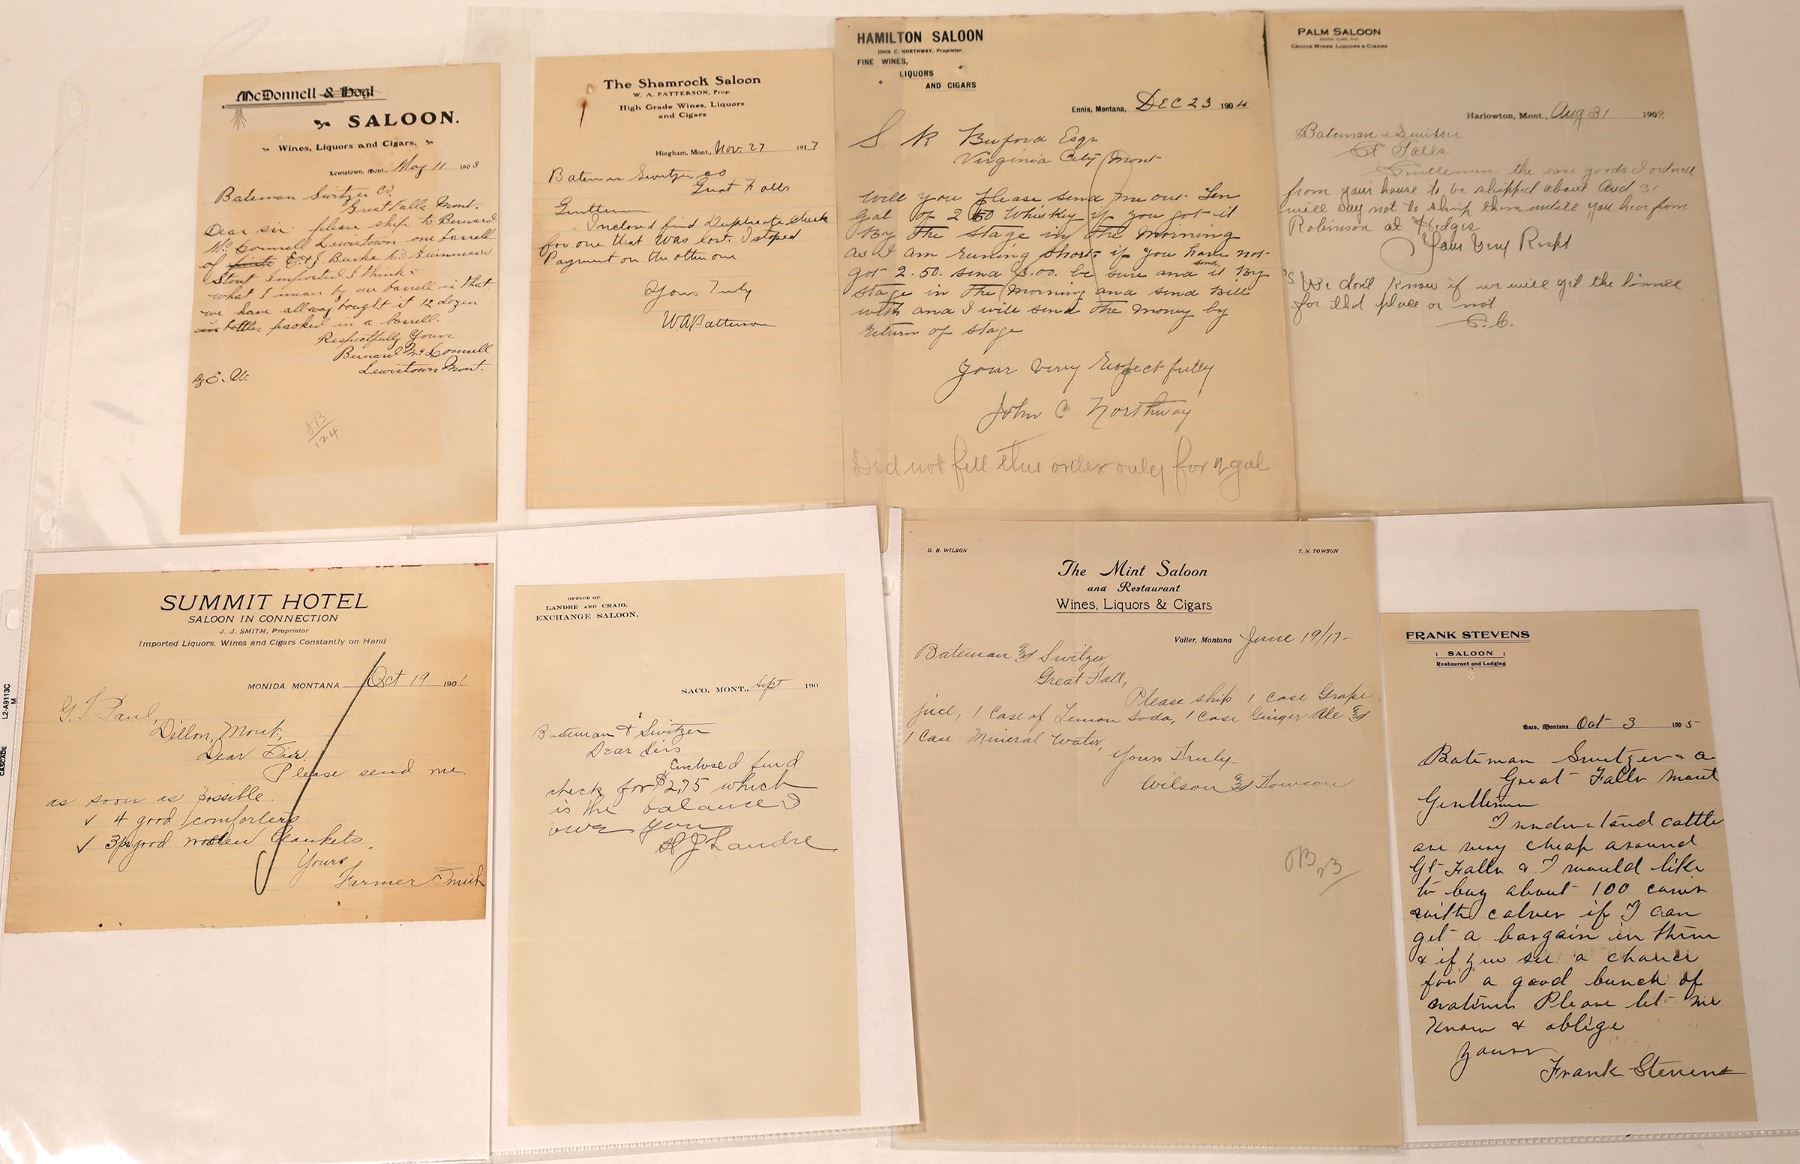 McDonnell & Hogl
SALOON.
Wines, Liquors and Cigars.
Lewistown, Mont., May 11 1908
Bateman Switzer Co.
Great Falls Mont.
Dear sir. please ship to Bernard
McDonnell Lewistown one barrell
of E & J. Burke Guinness
Stout Imported I think -
what I mean by one barrell is that
we have allway bought it 12 dozen
in bottles packed in a barrell.
Respectfully Yours
Bernard McDonnell
Lewistown Mont.
By E. W.
124
The Shamrock Saloon
W. A. PATTERSON, Prop.
High Grade Wines, Liquors
and Cigars
Hingham, Mont., Nov. 27 1917
Bateman Switzer co
Great Falls
Gentlemen
Inclosed find Duplicate check
for one that was lost. I stoped
Payment on the other one
Yours Truly
W A Patterson
HAMILTON SALOON
JOHN C. NORTHWAY, Proprietor.
FINE WINES,
LIQUORS
AND CIGARS
Ennis, Montana, DEC 23 1904
S R Buford Esqr
Virginia City Mont
will you please send me out Ten
Gal of 2 50 Whiskey if you got it
By the stage in the morning
as I am runing short if you have not
got 2.50. send 3.00. be sure and send it By
stage in the morning and send Bill
with and I will send the money by
return of stage
Your very respectfully
John C Northway
Did not fill this order only for 2 gal
PALM SALOON
CHOICE WINES, LIQUORS & CIGARS
Harlowton, Mont., Aug 31 1909
Bateman & Switzer
Gt Falls
Gentlemen the case goods I ordered
from your house to be shipped above Aud 31
will say not to ship them untill you hear from
Robinson at Hedges
Your Very Respt
P.S. We dont know if we will get the lincee
for that place or not
SUMMIT HOTEL
SALOON IN CONNECTION
J. J. SMITH, Proprietor
Imported Liquors, Wines and Cigars Constantly on Hand
MONIDA, MONTANA, Oct 19 190
G. T Paul,
Dillon, Mont,
Dear Sir,
Please send me
as soon as possible.
✓ 4 good comforters
✓ 3 pr good woolen blankets.
Yours,
Farmer Smith
OFFICE OF
LANDRE AND CRAIG,
EXCHANGE SALOON.
SACO, MONT., Sept 190
Bateman & Switzer
Dear Sirs
Enclosed find
check for $2.75 which
is the balance I
owe you
A J Landre
D. B. WILSON
T. N. TOWSON
The Mint Saloon
and Restaurant
Wines, Liquors & Cigars
Valier, Montana June 19/11-
Bateman & Switzer,
Great Fall,
Please ship 1 case Grape
juce, 1 Case of Lemon Soda, 1 case Ginger Ale &
1 Case Mineral Water,
Yours Truly-
Wilson & Towson
FRANK STEVENS
SALOON
Restaurant and Lodging
Saco, Montana Oct 3 1905
Bateman Switzer & Co
Great Falls Mont
Gentlemen
I understand cattle
are very cheap around
Gt Falls & I would like
to buy about 100 cows
with calves if I can
get a bargain in them
& if you see a chance
for a good bunch of
natives Please let me
Know & oblige
Yours
Frank Stevens